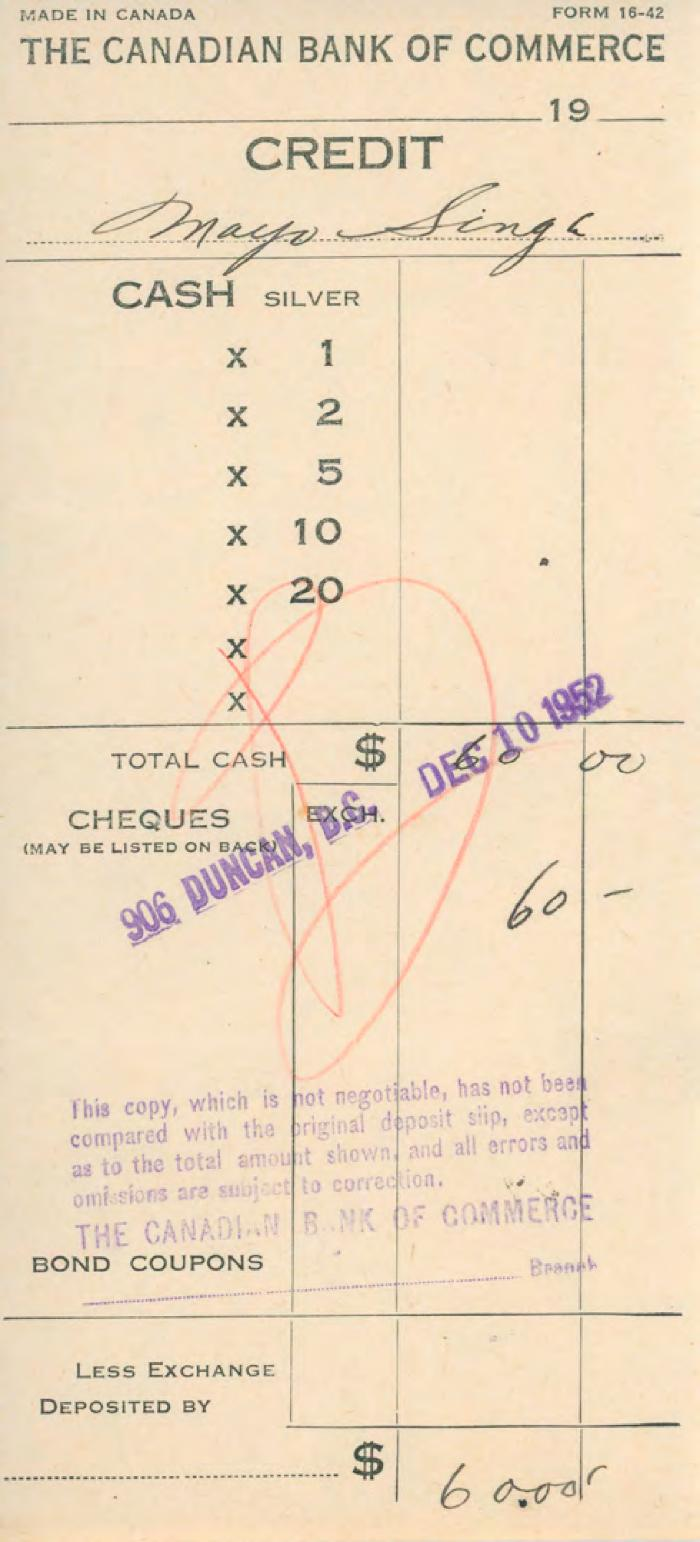 MADE IN CANADA FORM 16-42
THE CANADIAN BANK OF COMMERCE
19
CREDIT
Mayo Singh
CASH SILVER
x 1
x 2
x 5
x 10
x 20
x
x
TOTAL CASH $ 60 00
DEC 10 1952
CHEQUES EXCH.
(MAY BE LISTED ON BACK)
906 DUNCAN, B.C.
60 -
This copy, which is not negotiable, has not been
compared with the original deposit slip, except
as to the total amount shown, and all errors and
omissions are subject to correction.
THE CANADIAN BANK OF COMMERCE
BOND COUPONS
Branch
LESS EXCHANGE
DEPOSITED BY
$ 60.00